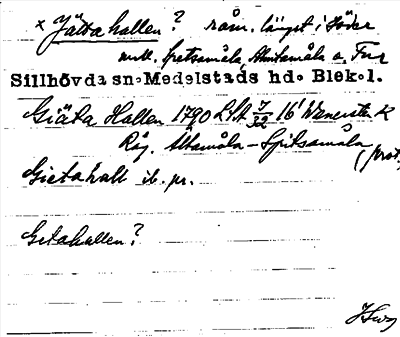 × Jätta hallen? råm. längst i Söder
mell. Spetsamåla, Almtamåla o. Fur
Sillhövda sn. Medelstads hd. Blek. l.
Giäta Hallen 1790 LSA 7/32 16
Råg. Altamåla - Spitsamåla (prot.
Gietahall ib. pr.
Getahallen?